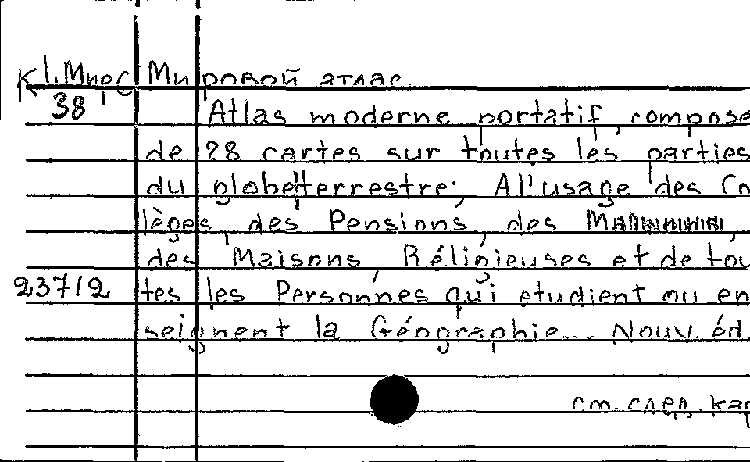 К I. МирС Мировой атлас
38 Atlas moderne portatif, compose
de 28 cartes sur toutes les parties
du globe terrestre; A l'usage des Co
lèges, des Pensions, des
des Maisons Réligieuses et de tou
23712 tes les Personnes qui etudient ou en
seignent la Géographie. Nouv. éd.
см. след. кар